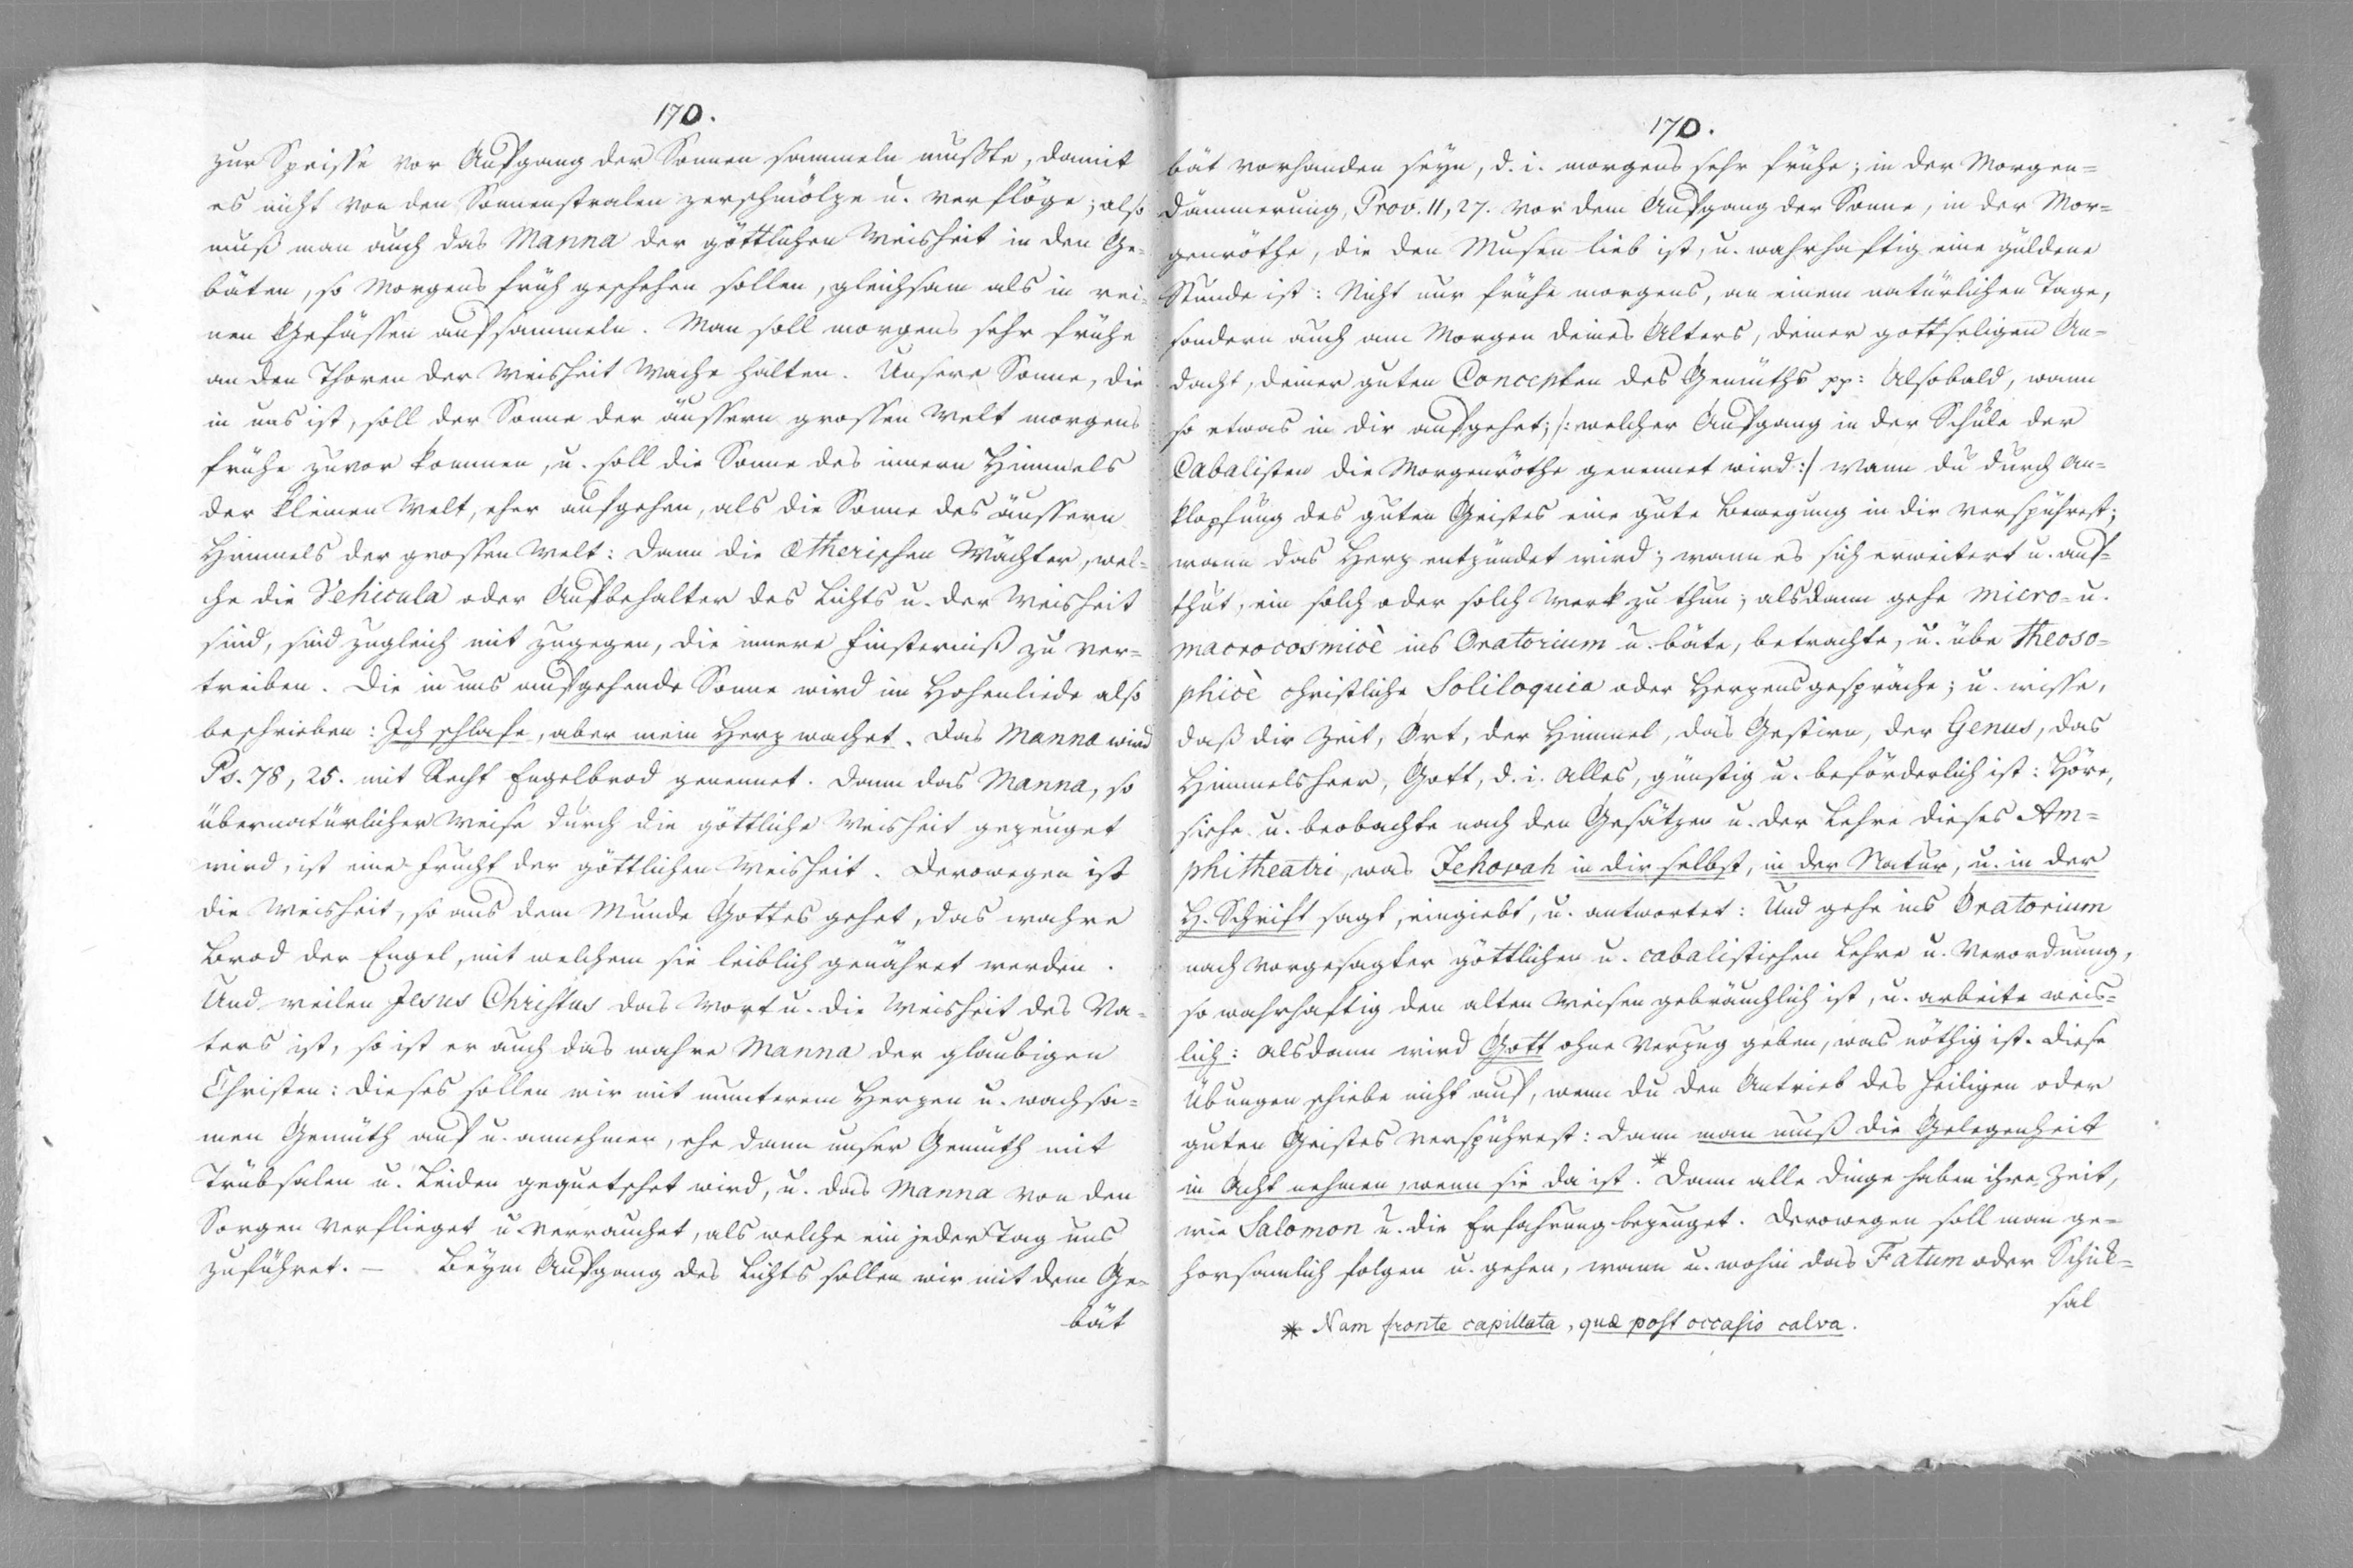 170.
zur Speisse vor Aufgang der Sonnen sammeln mußte, damit
es nicht von den Sonnenstralen zerschmölze u. verflöge; also
muß man auch das Manna der göttlichen Weisheit in den Ge=
bäten, so Morgens früh geschehen sollen, gleichsam als in rei=
nen Gefässen aufsammeln. Man soll morgens sehr frühe
an den Thoren der Weisheit Wache halten. Unsere Sonne, die
in uns ist, soll der Sonne der äussern grossen Welt morgens
frühe zuvor kommen, u. soll die Sonne des innern Himmels
der kleinen Welt, eher aufgehen, als die Sonne des äussern
Himmels der grossen Welt: Dann die ætherischen Wächter, wel=
che die Vehicula oder Aufbehalter des Lichts u. der Weisheit
sind, sind zugleich mit zugegen, die innere Finsterniß zu ver=
treiben. Die in uns aufgehende Sonne wird im Hohenliede also
beschrieben: Ich schlafe, aber mein Herz wachet. Das Manna wird
Ps. 78, 25. mit Recht Engelbrod genennet. Dann das Manna, so
übernatürlicher Weise durch die göttliche Weisheit gezeuget
wird, ist eine Frucht der göttlichen Weisheit. Derowegen ist
die Weisheit, so aus dem Munde Gottes gehet, das wahre
Brod der Engel, mit welchem sie leiblich genähret werden.
Und weilen Jesus Christus das Wort u. die Weisheit des Va=
ters ist, so ist er auch das wahre Manna der glaubigen
Christen: Dieses sollen wir mit munterem Herzen u. wachsa=
men Gemüth auf u. annehmen, ehe dann unser Gemüth mit
Trübsalen u. Leiden gequetschet wird, u. das Manna von den
Sorgen verflieget u. verrauchet, als welche ein jeder Tag uns
zuführet. — Beym Aufgang des Lichts sollen wir mit dem Ge=
bät
170.
bät vorhanden seyn, d. i. morgens sehr frühe; in der Morgen=
dämmerung, Prov. 11, 27. vor dem Aufgang der Sonne, in der Mor=
genröthe, die den Musen lieb ist, u. wahrhaftig eine güldene
Stunde ist: Nicht nur frühe morgens, an einem natürlichen Tage,
sondern auch am Morgen deines Alters, deiner gottseligen An=
dacht, deiner guten Concepten des Gemüths pp: Alsobald, wann
so etwas in dir aufgehet; /: welcher Aufgang in der Schule der
Cabalisten die Morgenröthe genennet wird :/ wann du durch An=
klopfung des guten Geistes eine gute Bewegung in dir verspührest;
wann das Herz entzündet wird; wann es sich erweitert u. auf=
thut, ein solch oder solch Werk zu thun; alsdann gehe micro= u.
macrocosmicè ins Oratorium u. bäte, betrachte, u. übe theoso=
phicè christliche Soliloquia oder Herzensgespräche; u. wisse,
daß dir Zeit, Ort, der Himmel, das Gestirn, der Genus, das
Himmelsheer, Gott, d. i. alles, günstig u. beförderlich ist: Höre,
siehe u. beobachte nach den Gesätzen u. der Lehre dieses Am=
phitheatri, was Jehovah in dir selbst, in der Natur, u. in der
H. Schrift sagt, eingiebt, u. antwortet: Und gehe ins Oratorium
nach vorgesagter göttlichen u. cabalistischen Lehre u. Verordnung,
so wahrhaftig den alten Weisen gebräuchlich ist, u. arbeite weis=
lich: alsdann wird Gott ohne Verzug geben, was nöthig ist. Diese
Übungen schiebe nicht auf, wenn du den Antrieb des heiligen oder
guten Geistes verspührest: Dann man muß die Gelegenheit
in Acht nehmen, wenn sie da ist.* Dann alle Dinge haben ihre Zeit,
wie Salomon u. die Erfahrung bezeuget. Derowegen soll man ge=
horsamlich folgen u. gehen, wann u. wohin das Fatum oder Schik=
sal
* Nam fronte capillata, quæ post occasio calva.